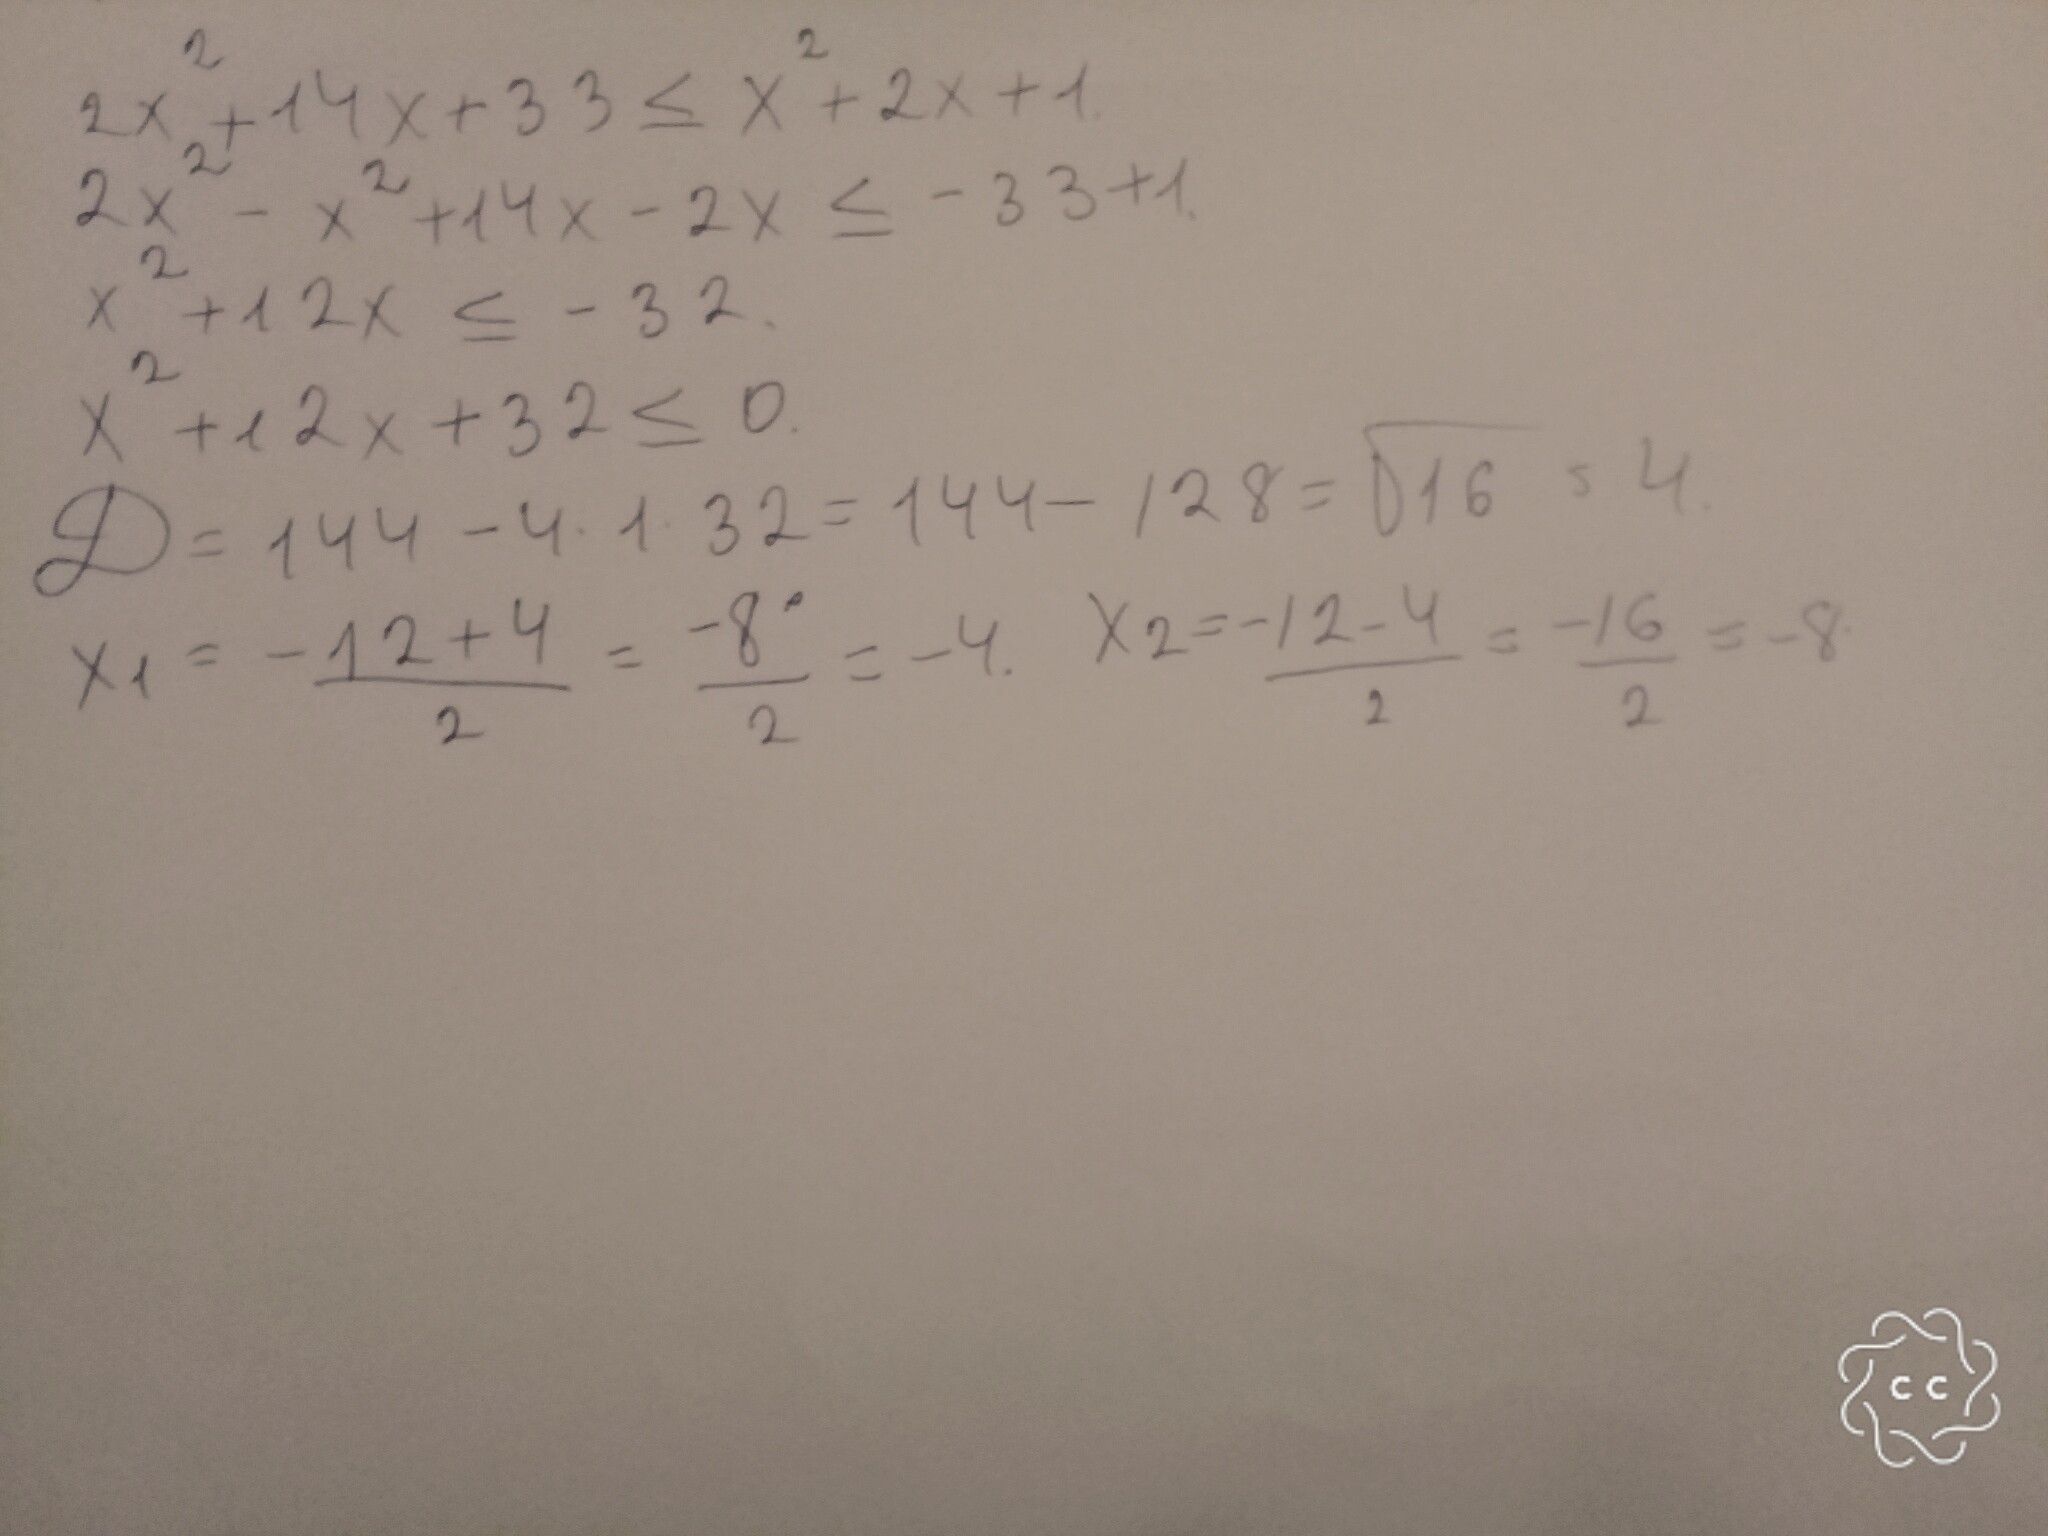 2x² + 14x + 33 ≤ x² + 2x + 1.
2x² - x² + 14x - 2x ≤ -33 + 1.
x² + 12x ≤ -32.
x² + 12x + 32 ≤ 0.
D = 144 - 4·1·32 = 144 - 128 = √16 = 4.
x1 = -12+4/2 = -8/2 = -4. x2 = -12-4/2 = -16/2 = -8.
cc